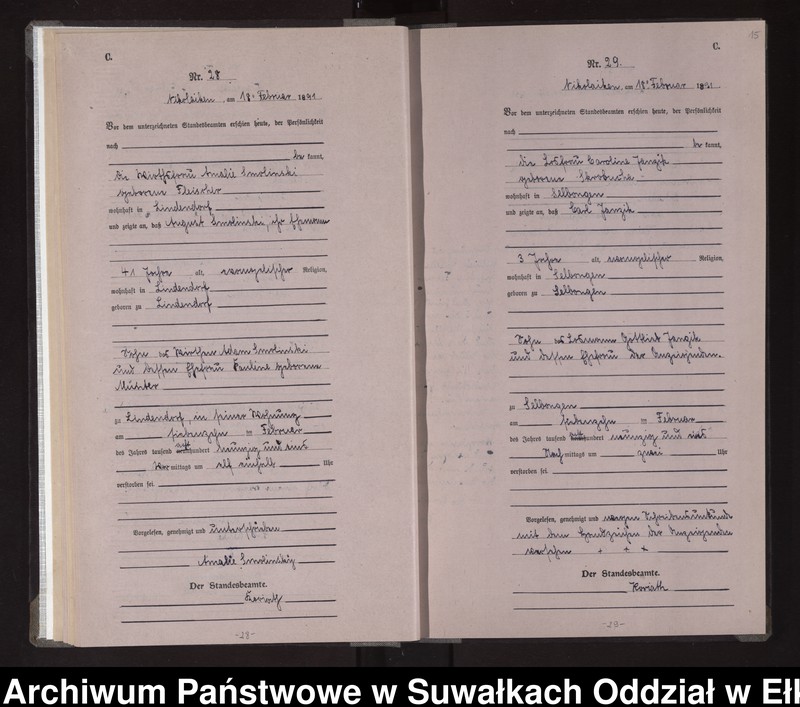 C.
Nr. 28
Nikolaiken, am 18. Februar 1891
Vor dem unterzeichneten Standesbeamten erschien heute, der Persönlichkeit
nach
be kannt,
die Wirthsfrau Amalie Smolinski
geborene Fleischer
wohnhaft in Lindendorf
und zeigte an, daß August Smolinski, ihr Ehemann
41 Jahre alt, evangelischer Religion,
wohnhaft in Lindendorf
geboren zu Lindendorf
Sohn des Wirthen Adam Smolinski
und dessen Ehefrau Pauline geborene
zu Lindendorf, in seiner Wohnung
am siebenzehn ten Februar
des Jahres tausend achthundert neunzig und eins
Vor mittags um elf einhalb Uhr
verstorben sei.
Vorgelesen, genehmigt und unterschrieben
Amalie Smolinski
Der Standesbeamte.
-28-
15
C.
Nr. 29.
Nikolaiken, am 18. Februar 1891
Vor dem unterzeichneten Standesbeamten erschien heute, der Persönlichkeit
nach
be kannt,
die Losfrau Caroline Janzik
geborene
wohnhaft in Selbongen
und zeigte an, daß Carl Janzik
3 Jahre alt, evangelischer Religion,
wohnhaft in Selbongen
geboren zu Selbongen
Sohn des Losmanns Gottlieb Janzik
und dessen Ehefrau der Anzeigenden.
zu Selbongen
am siebenzehn ten Februar
des Jahres tausend achthundert neunzig und eins
Nach mittags um zwei Uhr
verstorben sei.
Vorgelesen, genehmigt und wegen Schreibensunkunde
mit dem Handzeichen der Anzeigenden
versehen + + +
Der Standesbeamte.
Koriath
-29-
Archiwum Państwowe w Suwałkach Oddział w Ełk